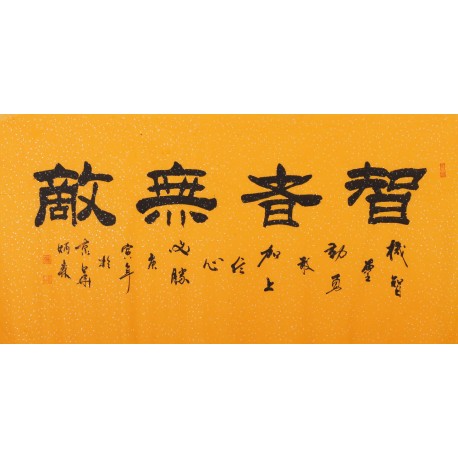 智者無敵
機智
勇
敢
加上
信
心
必勝
庚
寅年
於
京華
炳森